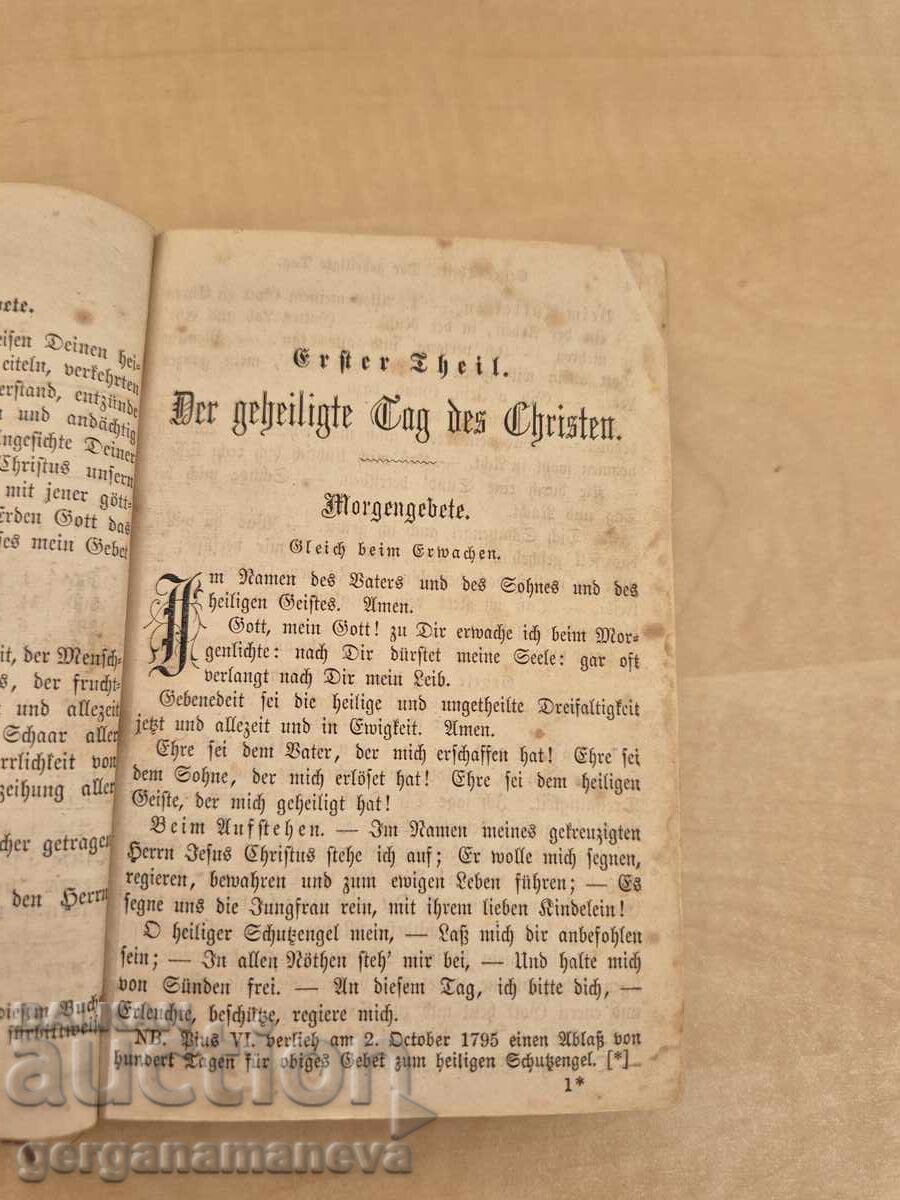 bete.
eisen Deinen hei-
eiteln, verkehrten
erstand, entzünde
und andächtig
Angesichte Deiner
Christus unsern
mit jener gött-
erden Gott das
ses mein Gebet
it, der Mensch-
s, der frucht-
und allezeit
Schaar aller
rrlichkeit von
zeihung aller
cher getragen
den Herrn
diesem Buch
fürbittweise
Erster Theil.
Der geheiligte Tag des Christen.
Morgengebete.
Gleich beim Erwachen.
Im Namen des Vaters und des Sohnes und des
heiligen Geistes. Amen.
Gott, mein Gott! zu Dir erwache ich beim Mor-
genlichte: nach Dir dürstet meine Seele: gar oft
verlangt nach Dir mein Leib.
Gebenedeit sei die heilige und ungetheilte Dreifaltigkeit
jetzt und allezeit und in Ewigkeit. Amen.
Ehre sei dem Vater, der mich erschaffen hat! Ehre sei
dem Sohne, der mich erlöset hat! Ehre sei dem heiligen
Geiste, der mich geheiligt hat!
Beim Aufstehen. — Im Namen meines gekreuzigten
Herrn Jesus Christus stehe ich auf; Er wolle mich segnen,
regieren, bewahren und zum ewigen Leben führen; — Es
segne uns die Jungfrau rein, mit ihrem lieben Kindelein!
O heiliger Schutzengel mein, — Laß mich dir anbefohlen
sein; — In allen Nöthen steh' mir bei, — Und halte mich
von Sünden frei. — An diesem Tag, ich bitte dich, —
Erleuchte, beschütze, regiere mich.
NB. Pius VI. verlieh am 2. October 1795 einen Ablaß von
hundert Tagen für obiges Gebet zum heiligen Schutzengel. [*]
1*
auction
gerganamaneva